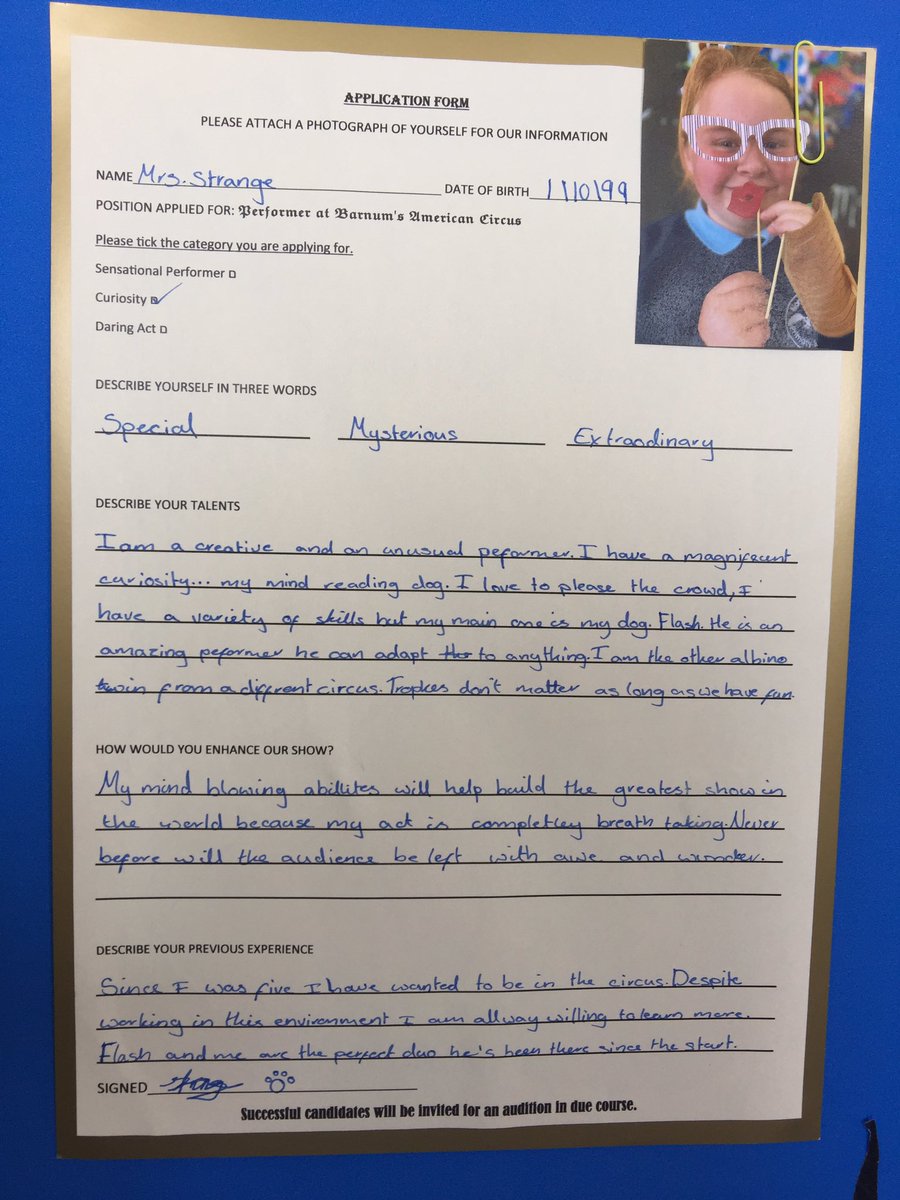 APPLICATION FORM
PLEASE ATTACH A PHOTOGRAPH OF YOURSELF FOR OUR INFORMATION
NAME Mrs. Strange DATE OF BIRTH 1/10/99
POSITION APPLIED FOR: Performer at Barnum's American Circus
Please tick the category you are applying for.
Sensational Performer
Curiosity
Daring Act
DESCRIBE YOURSELF IN THREE WORDS
Special Mysterious Extraodinary
DESCRIBE YOUR TALENTS
I am a creative and an unusual peformer. I have a magnificent
curiosity... my mind reading dog. I love to please the crowd, I
have a variety of skills but my main one is my dog. Flash. He is an
amazing peformer he can adapt to anything. I am the other albino
twin from a different circus. Tropkes don't matter as long as we have fun.
HOW WOULD YOU ENHANCE OUR SHOW?
My mind blowing abillites will help build the greatest show in
the world because my act is completley breath taking. Never
before will the audience be left with awe and wonder.
DESCRIBE YOUR PREVIOUS EXPERIENCE
Since I was five I have wanted to be in the circus. Despite
working in this environment I am allway willing to learn more.
Flash and me are the perfect duo he's been there since the start.
SIGNED
Successful candidates will be invited for an audition in due course.